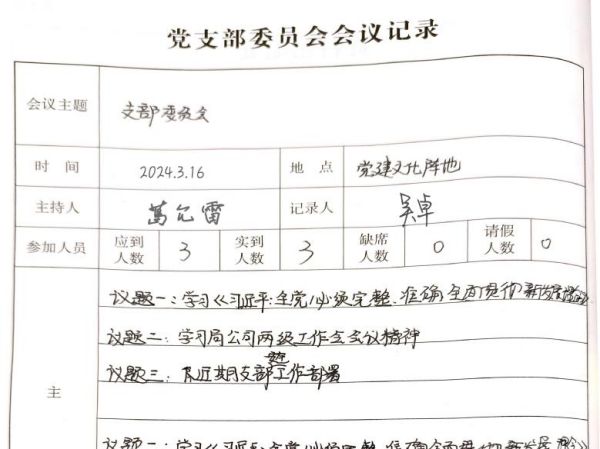 党支部委员会会议记录
会议主题 支部委员会
时间 2024.3.16 地点 党建文化阵地
主持人 葛允雷 记录人 吴卓
参加人员 应到人数 3 实到人数 3 缺席人数 0 请假人数 0
议题一:学习《习近平:全党必须完整、准确、全面贯彻新发展理念》
议题二:学习局公司两级工作会会议精神
议题三:近期支部工作部署
主
议题一:学习《习近平:全党必须完整、准确全面贯彻新发展理念》